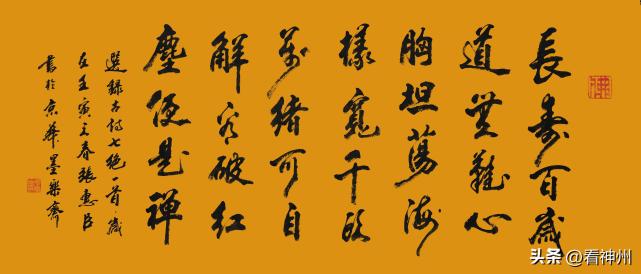 長壽百歲
道無難心
胸坦蕩海
樣寬千頭
萬緒可自
解看破紅
塵便是禪
選錄古詩七絕一首歲
在壬寅之春張惠臣
書於京華墨樂齋
头条 @看神州